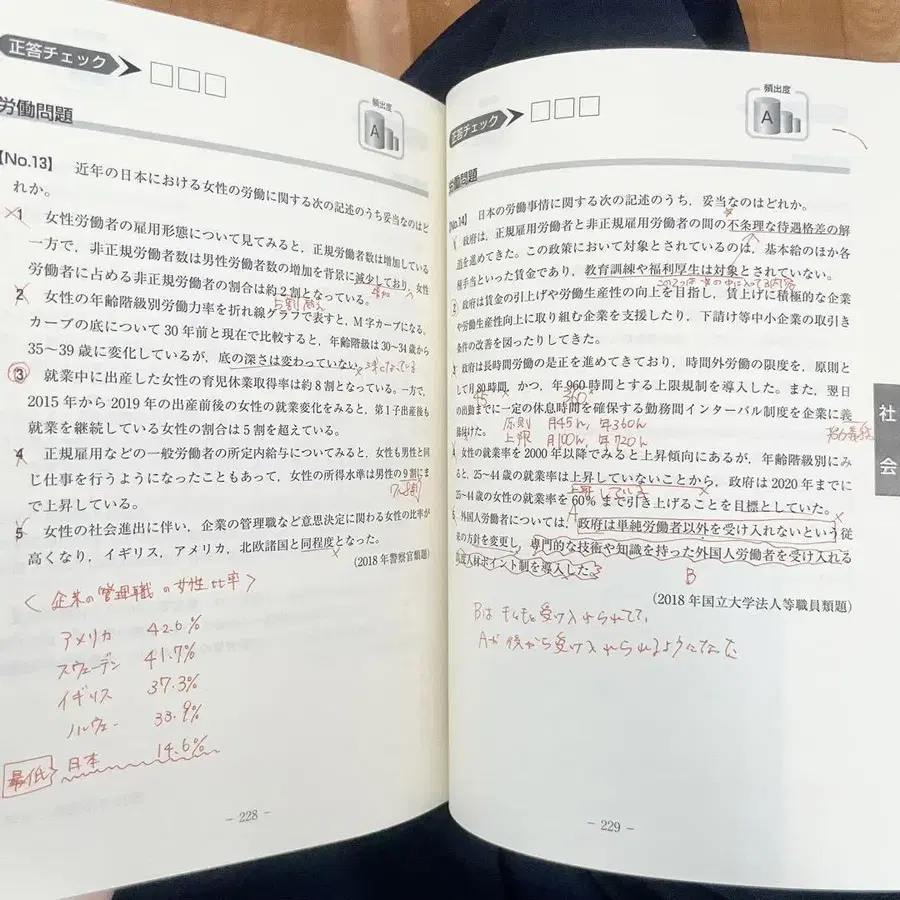 正答チェック
労働問題
頻出度
A
【No.13】 近年の日本における女性の労働に関する次の記述のうち妥当なのはど
れか。
×1 女性労働者の雇用形態について見てみると,正規労働者数は増加している
一方で,非正規労働者数は男性労働者数の増加を背景に減少しており,女性
増加
労働者に占める非正規労働者の割合は約2割となっている。
5割
2 女性の年齢階級別労働力率を折れ線グラフで表すと,M字カーブになる。
カーブの底について30年前と現在で比較すると,年齢階級は30~34歳から
35~39歳に変化しているが,底の深さは変わっていない。
浅くなっている
③ 就業中に出産した女性の育児休業取得率は約8割となっている。一方で,
2015年から2019年の出産前後の女性の就業変化をみると,第1子出産後も
就業を継続している女性の割合は5割を超えている。
4 正規雇用などの一般労働者の所定内給与についてみると,女性も男性と同
じ仕事を行うようになったこともあって,女性の所得水準は男性の9割にま
7~8割
で上昇している。
5 女性の社会進出に伴い,企業の管理職など意思決定に関わる女性の比率が
高くなり,イギリス,アメリカ,北欧諸国と同程度となった。
×
(2018年警察官類題)
<企業の管理職の女性比率>
アメリカ 42.6%
スウェーデン 41.7%
イギリス 37.3%
ノルウェー 33.9%
最低 日本 14.6%
- 228 -
正答チェック
労働問題
頻出度
A
【No.14】 日本の労働事情に関する次の記述のうち,妥当なのはどれか。
政府は,正規雇用労働者と非正規雇用労働者の間の不条理な待遇格差の解
消を進めてきた。この政策において対象とされているのは,基本給のほか各
種手当といった賃金であり,教育訓練や福利厚生は対象とされていない。
② 政府は賃金の引上げや労働生産性の向上を目指し,賃上げに積極的な企業
や労働生産性向上に取り組む企業を支援したり,下請け等中小企業の取引き
条件の改善を図ったりしてきた。
政府は長時間労働の是正を進めてきており,時間外労働の限度を,原則と
して月80時間,かつ,年960時間とする上限規制を導入した。また,翌日
45 360
の出勤までに一定の休息時間を確保する勤務間インターバル制度を企業に義
務付けた。
原則 月45h,年360h
上限 月100h,年720h
女性の就業率を2000年以降でみると上昇傾向にあるが,年齢階級別にみ
ると,25~44歳の就業率は上昇していないことから,政府は2020年までに
上昇している
25~44歳の女性の就業率を60%まで引き上げることを目標としていた。
A
外国人労働者については,政府は単純労働者以外を受け入れないという従
来の方針を変更し,専門的な技術や知識を持った外国人労働者を受け入れる
高度人材ポイント制を導入した。
B
(2018年国立大学法人等職員類題)
Bはそもそも受け入れられてて,
Aが後から受け入れられるようになった
社
会
- 229 -